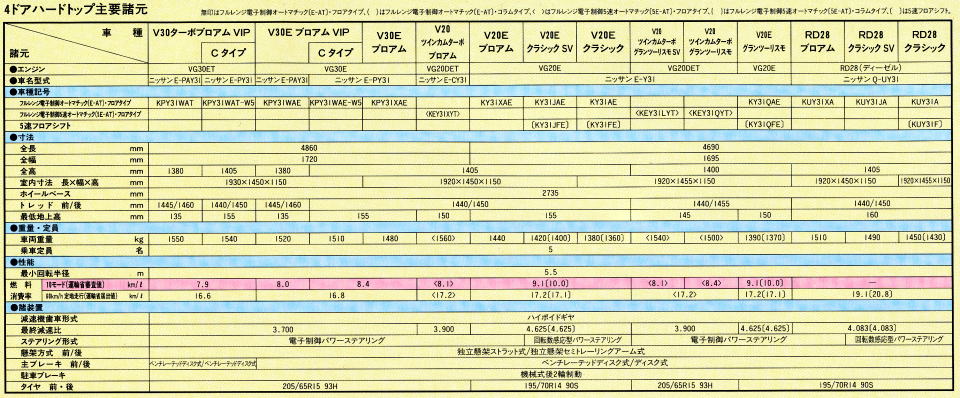 4ドアハードトップ主要諸元
無印はフルレンジ電子制御オートマチック(E-AT)・フロアタイプ、( )はフルレンジ電子制御オートマチック(E-AT)・コラムタイプ、< >はフルレンジ電子制御5速オートマチック(5E-AT)・フロアタイプ、( )はフルレンジ電子制御5速オートマチック(5E-AT)・コラムタイプ、[ ]は5速フロアシフト。
車種 V30ターボブロアム VIP V30E ブロアム VIP V30E ブロアム V20 ツインカムターボ ブロアム V20E ブロアム V20E クラシック SV V20E クラシック V20 ツインカムターボ グランツーリスモSV V20 ツインカムターボ グランツーリスモ V20E グランツーリスモ RD28 ブロアム RD28 クラシック SV RD28 クラシック
諸元 Cタイプ Cタイプ
●エンジン VG30ET VG30E VG20DET VG20E VG20DET VG20E RD28(ディーゼル)
●車名型式 ニッサン E-PAY31 ニッサン E-PY31 ニッサン E-PAY31 ニッサン E-PY31 ニッサン E-CY31 ニッサン E-Y31 ニッサン Q-UY31
●車種記号
フルレンジ電子制御オートマチック(E-AT)・フロアタイプ KPY31WAT KPY31WAT-W5 KPY31WAE KPY31WAE-W5 KPY31XAE KY31XAE KY31JAE KY31AE KY31QAE KUY31XA KUY31JA KUY31A
フルレンジ電子制御5速オートマチック(5E-AT)・フロアタイプ <KEY31XYT> <KEY31LYT> <KEY31QYT>
5速フロアシフト [KY31JFE] [KY31FE] [KY31QFE] [KUY31F]
●寸法
全長 mm 4860 4690
全幅 mm 1720 1695
全高 mm 1380 1405 1380 1405 1400 1405
室内寸法 長×幅×高 mm 1930×1450×1150 1920×1450×1150 1920×1455×1150 1920×1450×1150 1920×1455×1150
ホイールベース mm 2735
トレッド 前/後 mm 1445/1460 1440/1450 1445/1460 1440/1450 1440/1455 1440/1450
最低地上高 mm 135 155 135 155 150 155 145 150 160
●重量・定員
車両重量 kg 1550 1540 1520 1510 1480 <1560> 1440 1420[1400] 1380[1360] <1540> <1500> 1390[1370] 1510 1490 1450[1430]
乗車定員 名 5
●性能
最小回転半径 m 5.5
燃料 10モード(運輸省審査値) km/ℓ 7.9 8.0 8.4 <8.1> 9.1[10.0] <8.1> <8.4> 9.1[10.0] —
消費率 60km/h定地走行(運輸省届出値) km/ℓ 16.6 16.8 <17.2> 17.2[17.1] <17.2> 17.2[17.1] 19.1[20.8]
●諸装置
減速機歯車形式 ハイポイドギヤ
最終減速比 3.700 3.900 4.625[4.625] 3.900 4.625[4.625] 4.083[4.083]
ステアリング形式 電子制御パワーステアリング 回転数感応型パワーステアリング 電子制御パワーステアリング 回転数感応型パワーステアリング
懸架方式 前/後 独立懸架ストラット式/独立懸架セミトレーリングアーム式
主ブレーキ 前/後 ベンチレーテッドディスク式/ベンチレーテッドディスク式 ベンチレーテッドディスク式/ディスク式
駐車ブレーキ 機械式後2輪制動
タイヤ 前・後 205/65R15 93H 195/70R14 90S 205/65R15 93H 195/70R14 90S